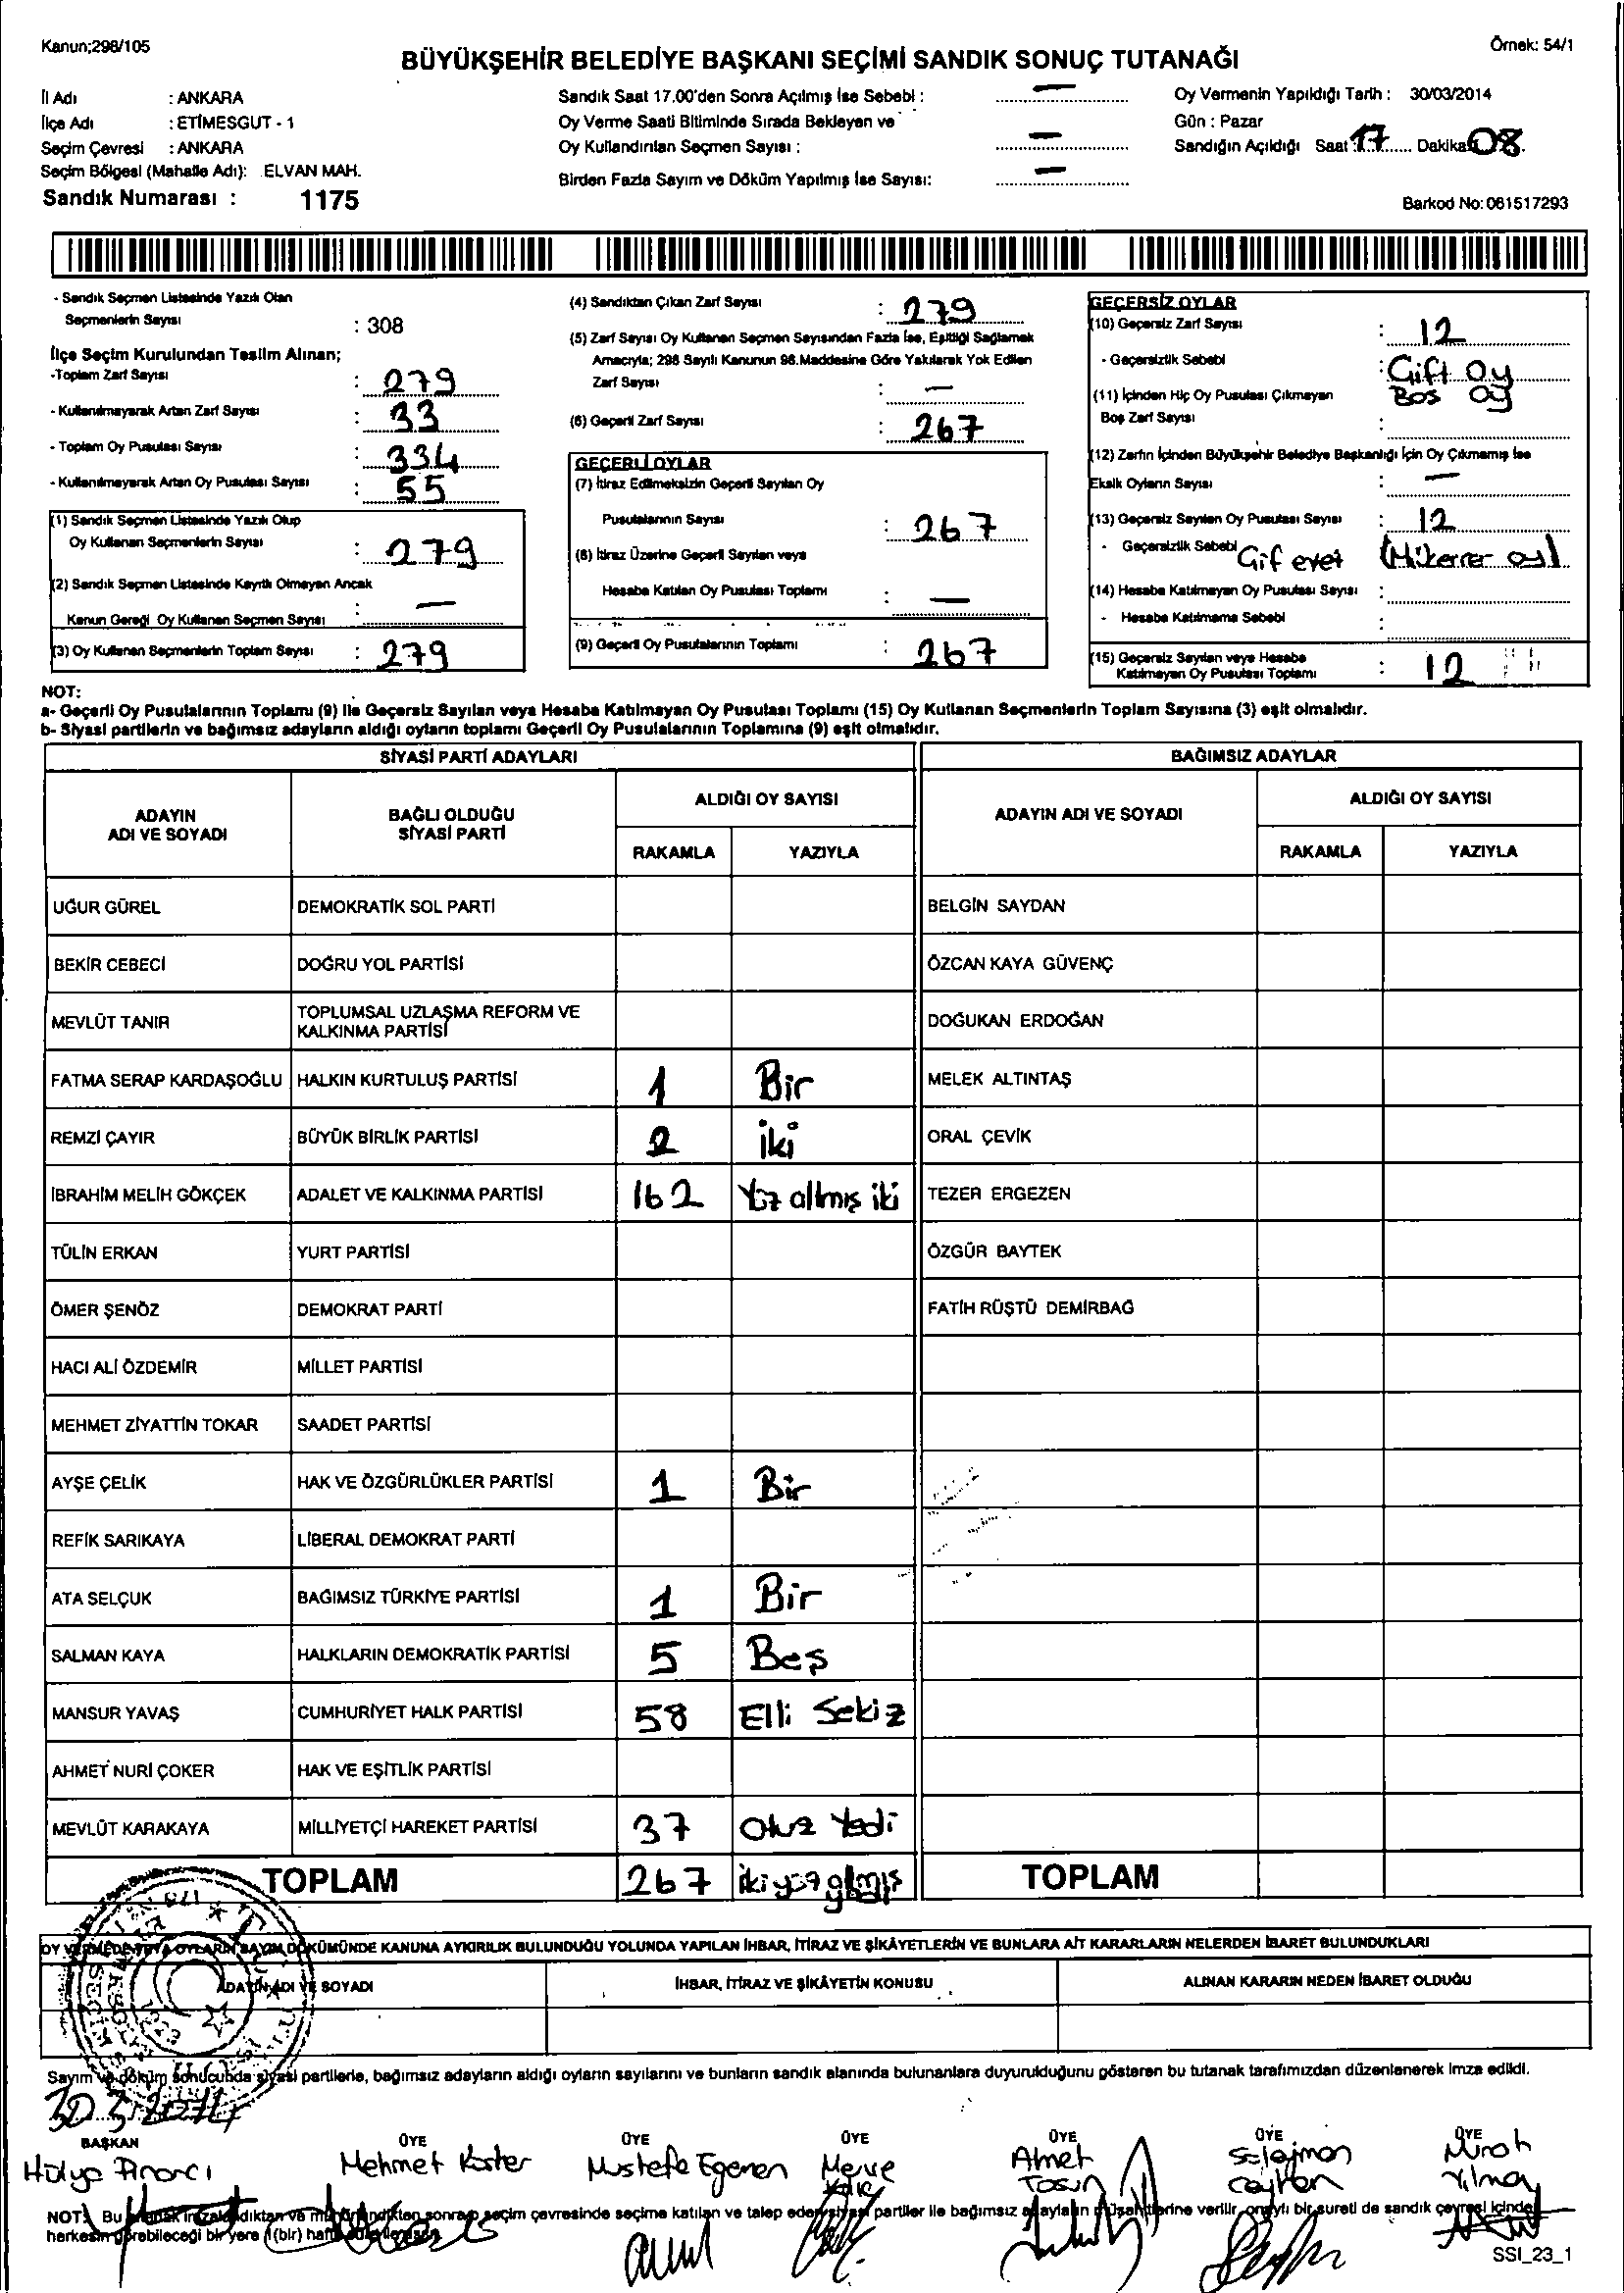 Kanun;298/105
Örnek: 54/1
BÜYÜKŞEHİR BELEDİYE BAŞKANI SEÇİMİ SANDIK SONUÇ TUTANAĞI
İl Adı : ANKARA
İlçe Adı : ETİMESGUT - 1
Seçim Çevresi : ANKARA
Seçim Bölgesi (Mahalle Adı): ELVAN MAH.
Sandık Numarası : 1175
Sandık Saat 17.00'den Sonra Açılmış İse Sebebi : —
Oy Verme Saati Bitiminde Sırada Bekleyen ve
Oy Kullandırılan Seçmen Sayısı : —
Birden Fazla Sayım ve Döküm Yapılmış İse Sayısı: —
Oy Vermenin Yapıldığı Tarih : 30/03/2014
Gün : Pazar
Sandığın Açıldığı Saat 17 Dakika 08
Barkod No: 061517293
- Sandık Seçmen Listesinde Yazılı Olan
Seçmenlerin Sayısı : 308
İlçe Seçim Kurulundan Teslim Alınan;
-Toplam Zarf Sayısı : 279
- Kullanılmayarak Artan Zarf Sayısı : 33
- Toplam Oy Pusulası Sayısı : 334
- Kullanılmayarak Artan Oy Pusulası Sayısı : 55
(1) Sandık Seçmen Listesinde Yazılı Olup
Oy Kullanan Seçmenlerin Sayısı : 279
(2) Sandık Seçmen Listesinde Kayıtlı Olmayan Ancak
Kanun Gereği Oy Kullanan Seçmen Sayısı : —
(3) Oy Kullanan Seçmenlerin Toplam Sayısı : 279
(4) Sandıktan Çıkan Zarf Sayısı : 279
(5) Zarf Sayısı Oy Kullanan Seçmen Sayısından Fazla İse, Eşitliği Sağlamak
Amacıyla; 298 Sayılı Kanunun 98.Maddesine Göre Yakılarak Yok Edilen
Zarf Sayısı : —
(6) Geçerli Zarf Sayısı : 267
GEÇERLİ OYLAR
(7) İtiraz Edilmeksizin Geçerli Sayılan Oy
Pusulalarının Sayısı : 267
(8) İtiraz Üzerine Geçerli Sayılan veya
Hesaba Katılan Oy Pusulası Toplamı : —
(9) Geçerli Oy Pusulalarının Toplamı : 267
GEÇERSİZ OYLAR
(10) Geçersiz Zarf Sayısı : 12
- Geçersizlik Sebebi : Çift Oy
Boş Oy
(11) İçinden Hiç Oy Pusulası Çıkmayan
Boş Zarf Sayısı :
(12) Zarfın İçinden Büyükşehir Belediye Başkanlığı İçin Oy Çıkmamış İse
Eksik Oyların Sayısı : —
(13) Geçersiz Sayılan Oy Pusulası Sayısı : 12
- Geçersizlik Sebebi Çif evet (Mükerrer oy)
(14) Hesaba Katılmayan Oy Pusulası Sayısı :
- Hesaba Katılmama Sebebi :
(15) Geçersiz Sayılan veya Hesaba
Katılmayan Oy Pusulası Toplamı : 12
NOT:
a- Geçerli Oy Pusulalarının Toplamı (9) ile Geçersiz Sayılan veya Hesaba Katılmayan Oy Pusulası Toplamı (15) Oy Kullanan Seçmenlerin Toplam Sayısına (3) eşit olmalıdır.
b- Siyasi partilerin ve bağımsız adayların aldığı oyların toplamı Geçerli Oy Pusulalarının Toplamına (9) eşit olmalıdır.
SİYASİ PARTİ ADAYLARI
BAĞIMSIZ ADAYLAR
ADAYIN ADI VE SOYADI
BAĞLI OLDUĞU SİYASİ PARTİ
ALDIĞI OY SAYISI
RAKAMLA YAZIYLA
ADAYIN ADI VE SOYADI
ALDIĞI OY SAYISI
RAKAMLA YAZIYLA
UĞUR GÜREL DEMOKRATİK SOL PARTİ BELGİN SAYDAN
BEKİR CEBECİ DOĞRU YOL PARTİSİ ÖZCAN KAYA GÜVENÇ
MEVLÜT TANIR TOPLUMSAL UZLAŞMA REFORM VE KALKINMA PARTİSİ DOĞUKAN ERDOĞAN
FATMA SERAP KARDAŞOĞLU HALKIN KURTULUŞ PARTİSİ 1 Bir MELEK ALTINTAŞ
REMZİ ÇAYIR BÜYÜK BİRLİK PARTİSİ 2 iki ORAL ÇEVİK
İBRAHİM MELİH GÖKÇEK ADALET VE KALKINMA PARTİSİ 162 Yüz altmış iki TEZER ERGEZEN
TÜLİN ERKAN YURT PARTİSİ ÖZGÜR BAYTEK
ÖMER ŞENÖZ DEMOKRAT PARTİ FATİH RÜŞTÜ DEMİRBAĞ
HACI ALİ ÖZDEMİR MİLLET PARTİSİ
MEHMET ZİYATTİN TOKAR SAADET PARTİSİ
AYŞE ÇELİK HAK VE ÖZGÜRLÜKLER PARTİSİ 1 Bir
REFİK SARIKAYA LİBERAL DEMOKRAT PARTİ
ATA SELÇUK BAĞIMSIZ TÜRKİYE PARTİSİ 1 Bir
SALMAN KAYA HALKLARIN DEMOKRATİK PARTİSİ 5 Beş
MANSUR YAVAŞ CUMHURİYET HALK PARTİSİ 58 Elli Sekiz
AHMET NURİ ÇOKER HAK VE EŞİTLİK PARTİSİ
MEVLÜT KARAKAYA MİLLİYETÇİ HAREKET PARTİSİ 37 Otuz Yedi
TOPLAM 267 ikiyüz altmış yedi TOPLAM
OY VERMEDE VEYA OYLARIN SAYIM DÖKÜMÜNDE KANUNA AYKIRILIK BULUNDUĞU YOLUNDA YAPILAN İHBAR, İTİRAZ VE ŞİKÂYETLERİN VE BUNLARA AİT KARARLARIN NELERDEN İBARET BULUNDUKLARI
ADAYIN ADI VE SOYADI İHBAR, İTİRAZ VE ŞİKÂYETİN KONUSU ALINAN KARARIN NEDEN İBARET OLDUĞU
Sayım ve döküm sonucunda siyasi partilerle, bağımsız adayların aldığı oyların sayılarını ve bunların sandık alanında bulunanlara duyurulduğunu gösteren bu tutanak tarafımızdan düzenlenerek imza edildi.
30.3.2014
BAŞKAN ÜYE ÜYE ÜYE ÜYE ÜYE ÜYE
Hülya Pınarcı Mehmet Koster Mustafa Egemen Merve Ahmet Tosun Süleyman Ceyhan Murat Yılmaz
NOT: Bu tutanak imzalandıktan ve mühürlendikten sonra seçim çevresinde seçime katılan ve talep eden siyasi partiler ile bağımsız adayların müşahitlerine verilir, onaylı bir sureti de sandık çevresi içinde
herkesin görebileceği bir yere 1(bir) hafta
SSI_23_1